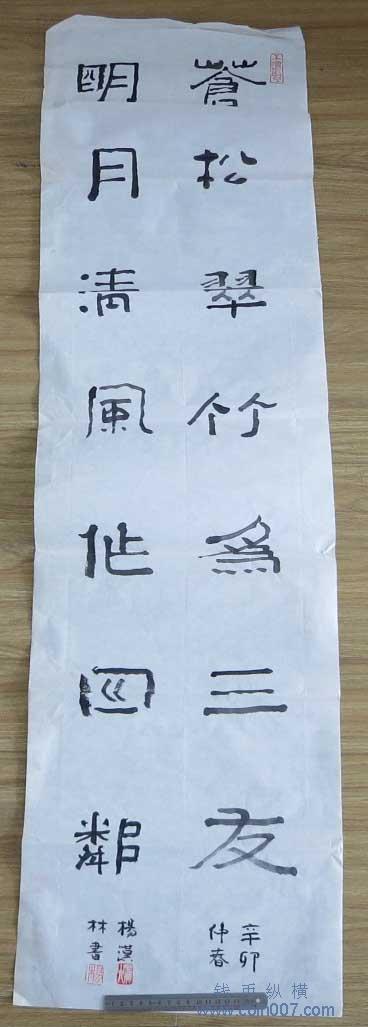 蒼松翠竹爲三友
明月清風作四鄰
辛卯
仲春
楊漢
林書
钱币纵横
www.coin007.com